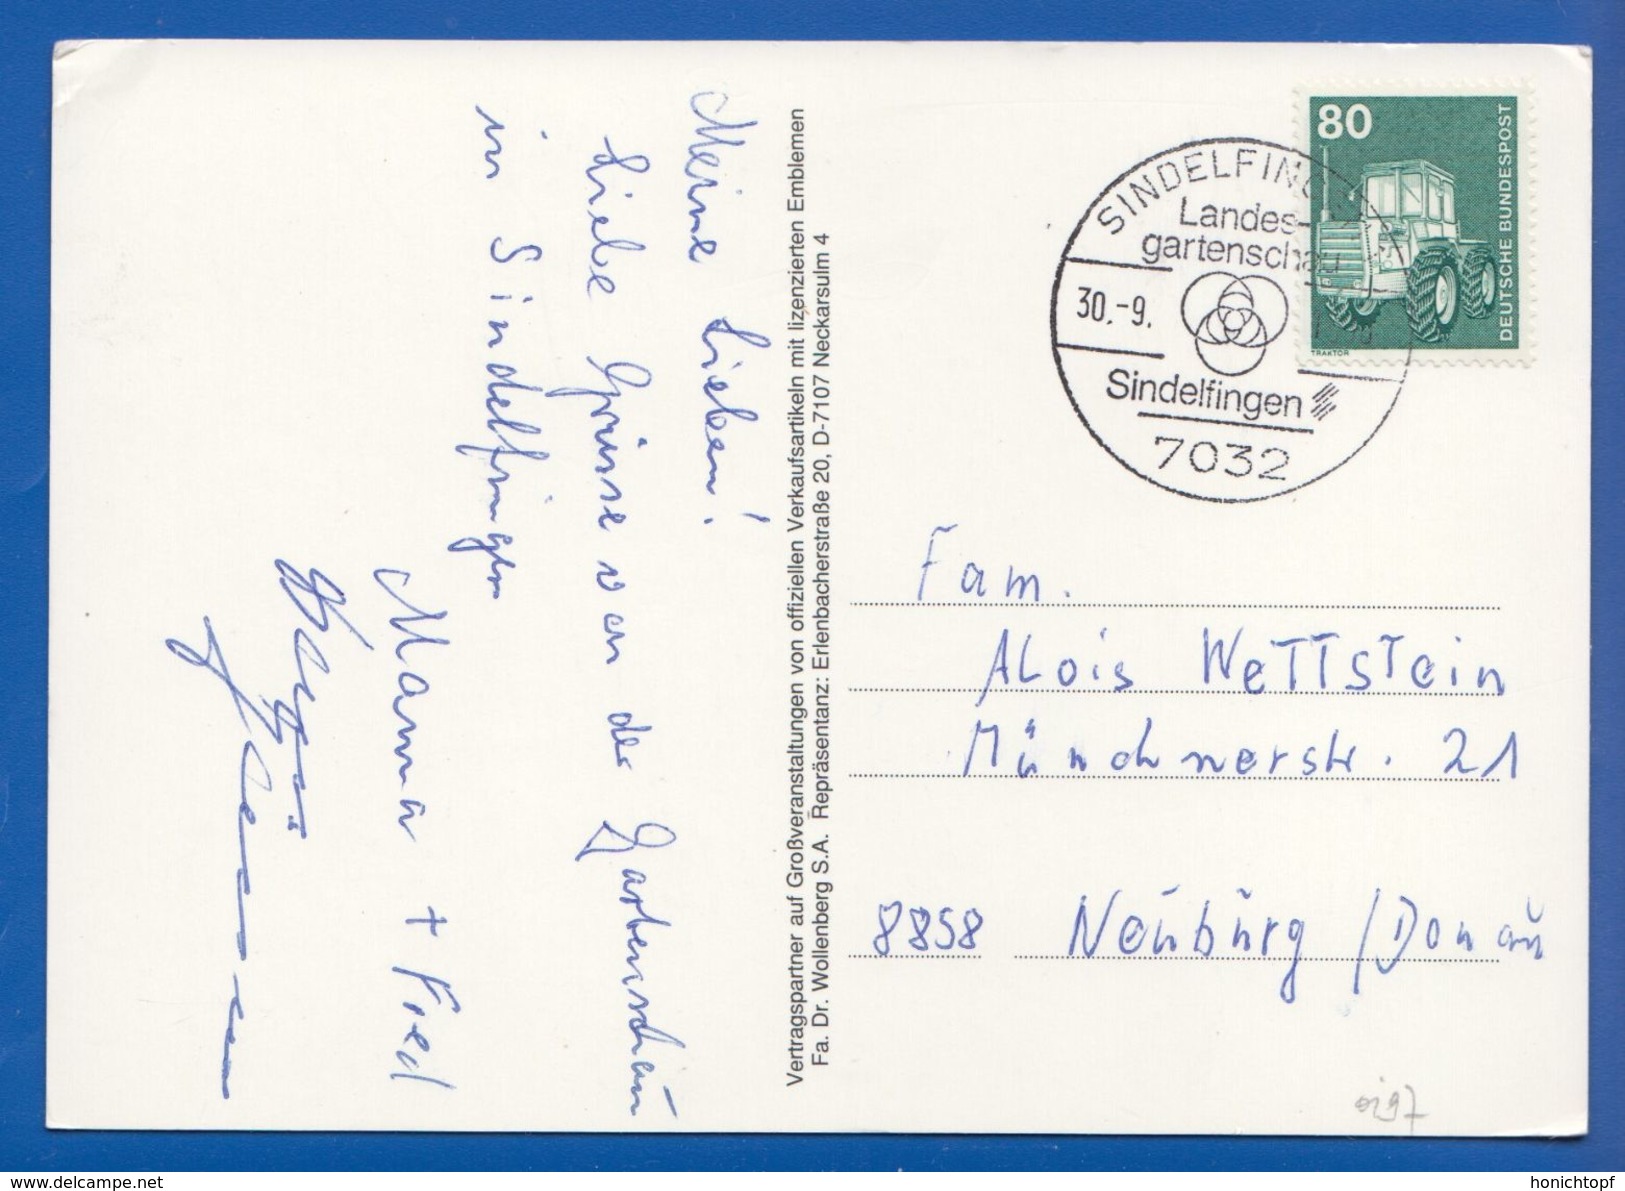 Meine Lieben!
Liebe Grüsse von der Gartenschau
in Sindelfingen
Mama + Fried
Vertragspartner auf Großveranstaltungen von offiziellen Verkaufsartikeln mit lizenzierten Emblemen
Fa. Dr. Wollenberg S.A. Repräsentanz: Erlenbacherstraße 20, D-7107 Neckarsulm 4
80
DEUTSCHE BUNDESPOST
TRAKTOR
SINDELFING
Landes-
gartenschau
30.-9.
Sindelfingen
7032
Fam.
Alois Wettstein
Münchnerstr. 21
8858 Neuburg / Donau
delcampe.net
honichtopf